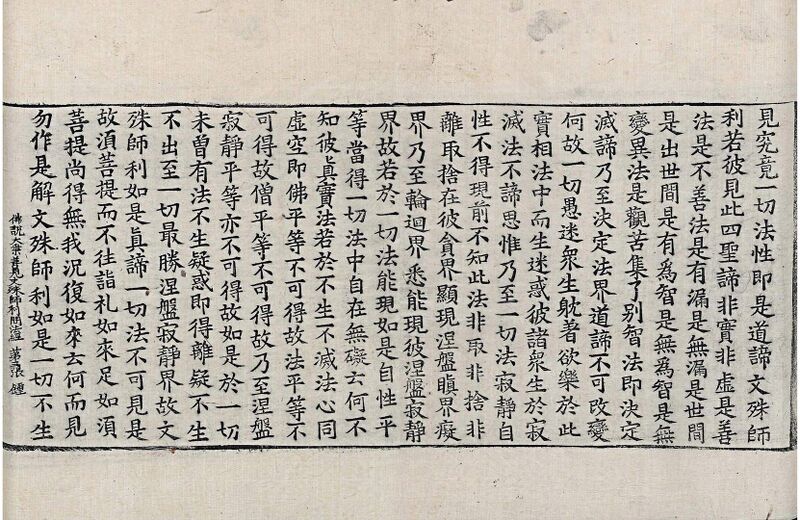 見究竟一切法性即是道諦文殊師
利若彼見此四聖諦非實非虛是善
法是不善法是有漏是無漏是世間
是出世間是有為智是無爲智是無
變異法是觀苦集了別智法即決定
滅諦乃至決定法界道諦不可改變
何故一切愚迷眾生躭著欲樂於此
實相法中而生迷惑彼諸眾生於寂
滅法不諦思惟乃至一切法寂靜自
性不得現前不知此法非取非捨非
離取捨在彼貪界顯現涅盤瞋界癡
界乃至輪迴界悉能現彼涅盤寂靜
界故若於一切法能現如是自性平
等當得一切法中自在無礙云何不
知彼眞實法若於不生不滅法心同
虛空即佛平等不可得故法平等不
可得故僧平等不可得故乃至涅盤
寂靜平等亦不可得故如是於一切
未曾有法不生疑惑即得離疑不生
不出至一切最勝涅盤寂靜界故文
殊師利如是眞諦一切法不可見是
故湏菩提而不往詣礼如來足如湏
菩提尚得無我況復如來云何而見
勿作是解文殊師利如是一切不生
佛說大乘善見文殊師利問經 張